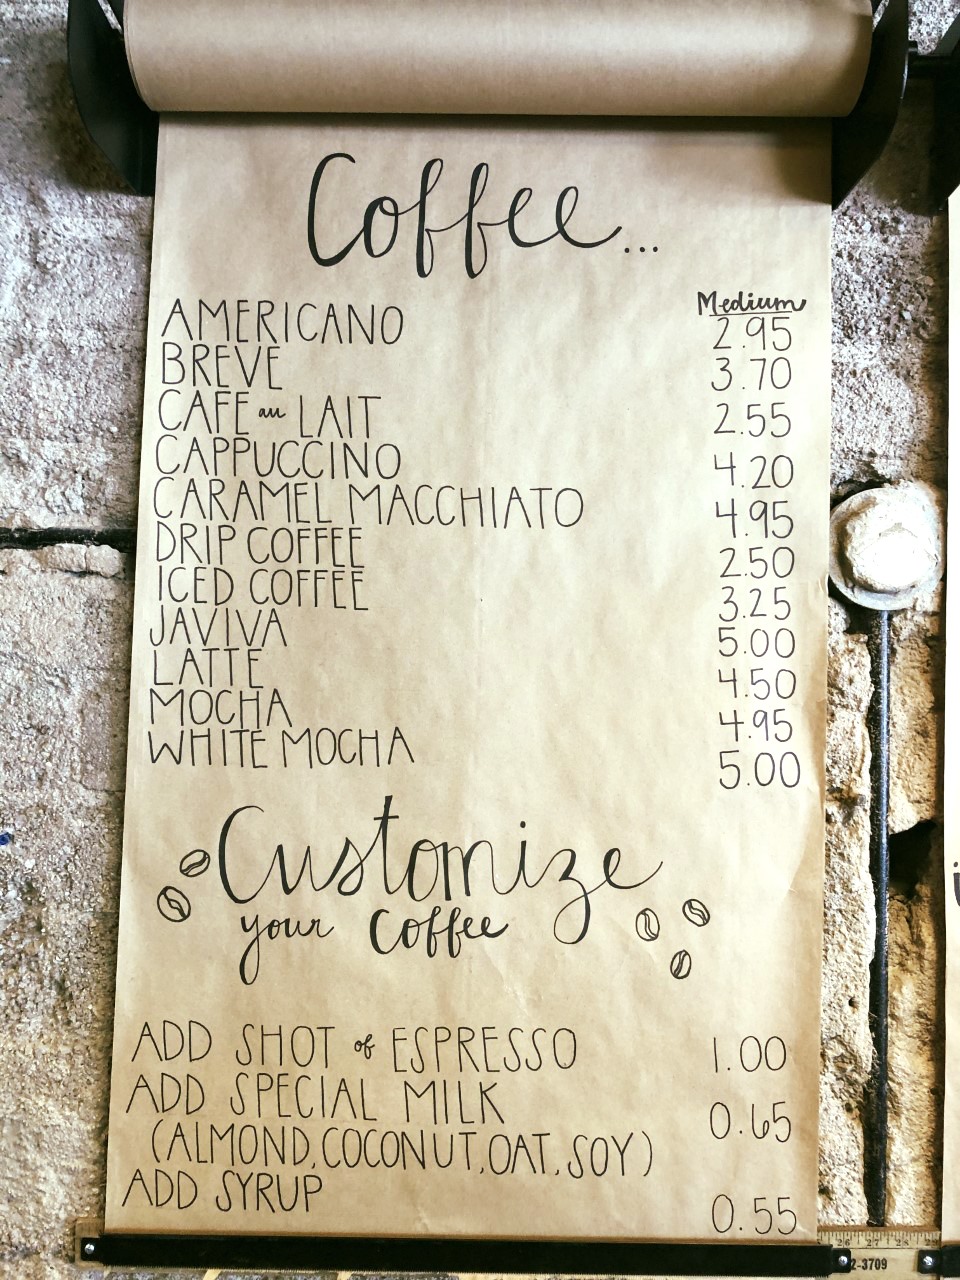 Coffee...
Medium
AMERICANO 2.95
BREVE 3.70
CAFE au LAIT 2.55
CAPPUCCINO 4.20
CARAMEL MACCHIATO 4.95
DRIP COFFEE 2.50
ICED COFFEE 3.25
JAVIVA 5.00
LATTE 4.50
MOCHA 4.95
WHITE MOCHA 5.00
Customize
your Coffee
ADD SHOT of ESPRESSO 1.00
ADD SPECIAL MILK 0.65
(ALMOND, COCONUT, OAT, SOY)
ADD SYRUP 0.55
26 27 28
2-3709